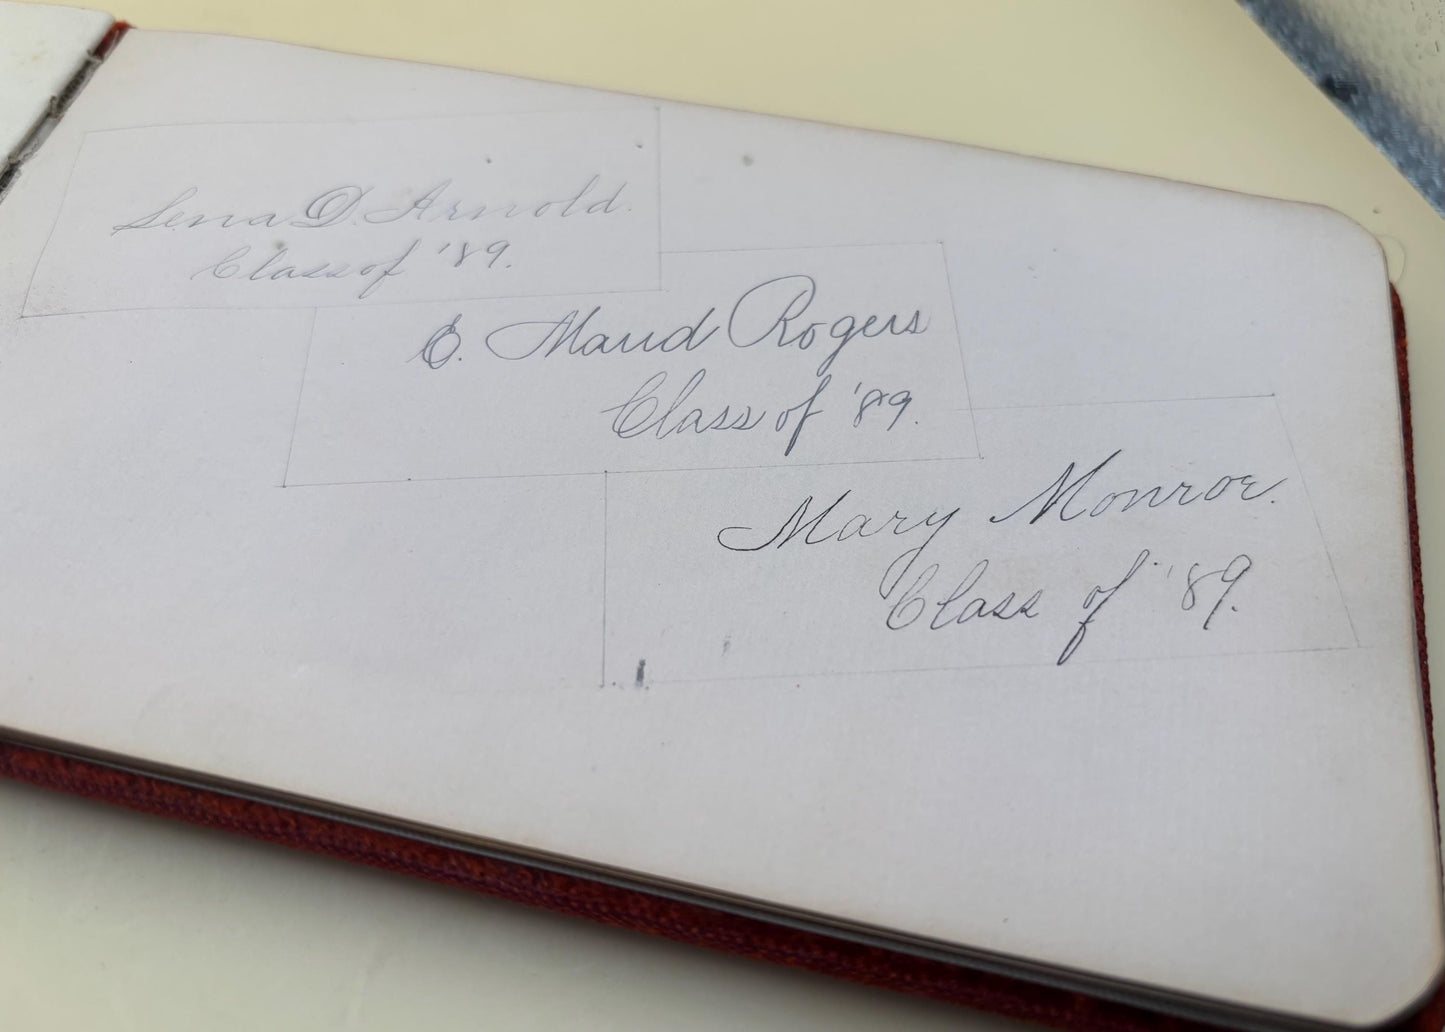 Lena D. Arnold.
Class of '89.
E. Maud Rogers
Class of '89.
Mary Monroe.
Class of '89.